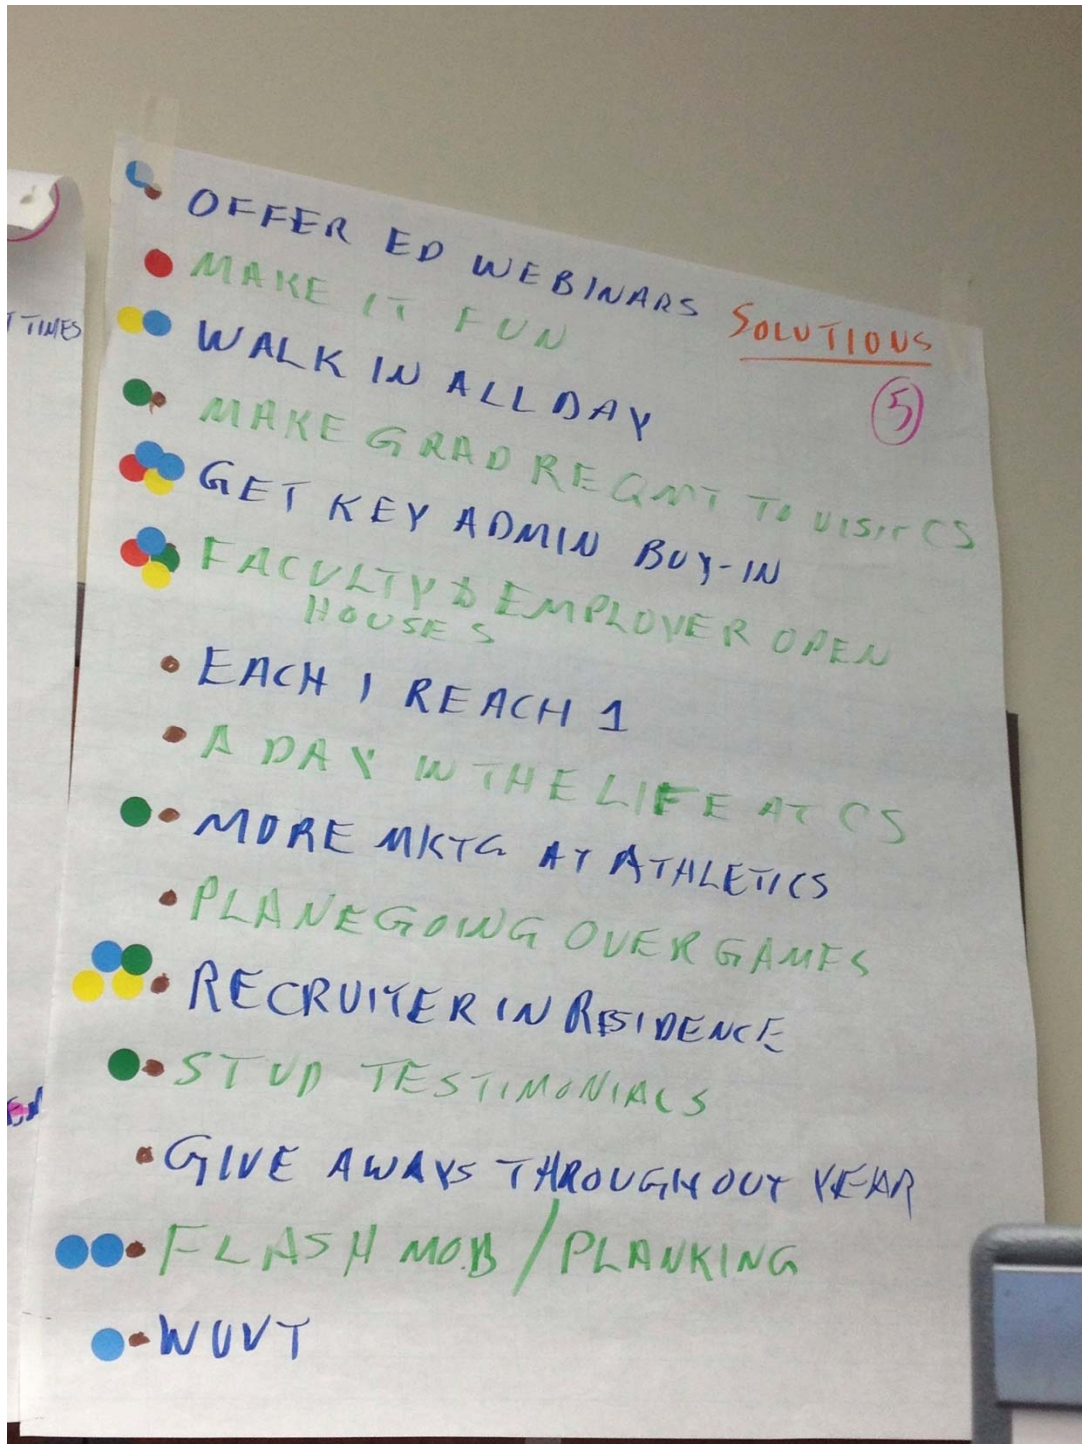 OFFER ED WEBINARS
SOLUTIONS
5
MAKE IT FUN
WALK IN ALL DAY
MAKE GRAD REQMT TO VISIT CS
GET KEY ADMIN BUY-IN
FACULTY & EMPLOYER OPEN
HOUSES
EACH 1 REACH 1
A DAY IN THE LIFE AT CS
MORE MKTG AT ATHLETICS
PLANE GOING OVER GAMES
RECRUITER IN RESIDENCE
STUD TESTIMONIALS
GIVE AWAYS THROUGHOUT YEAR
FLASH MOB / PLANKING
WUVT
TIMES